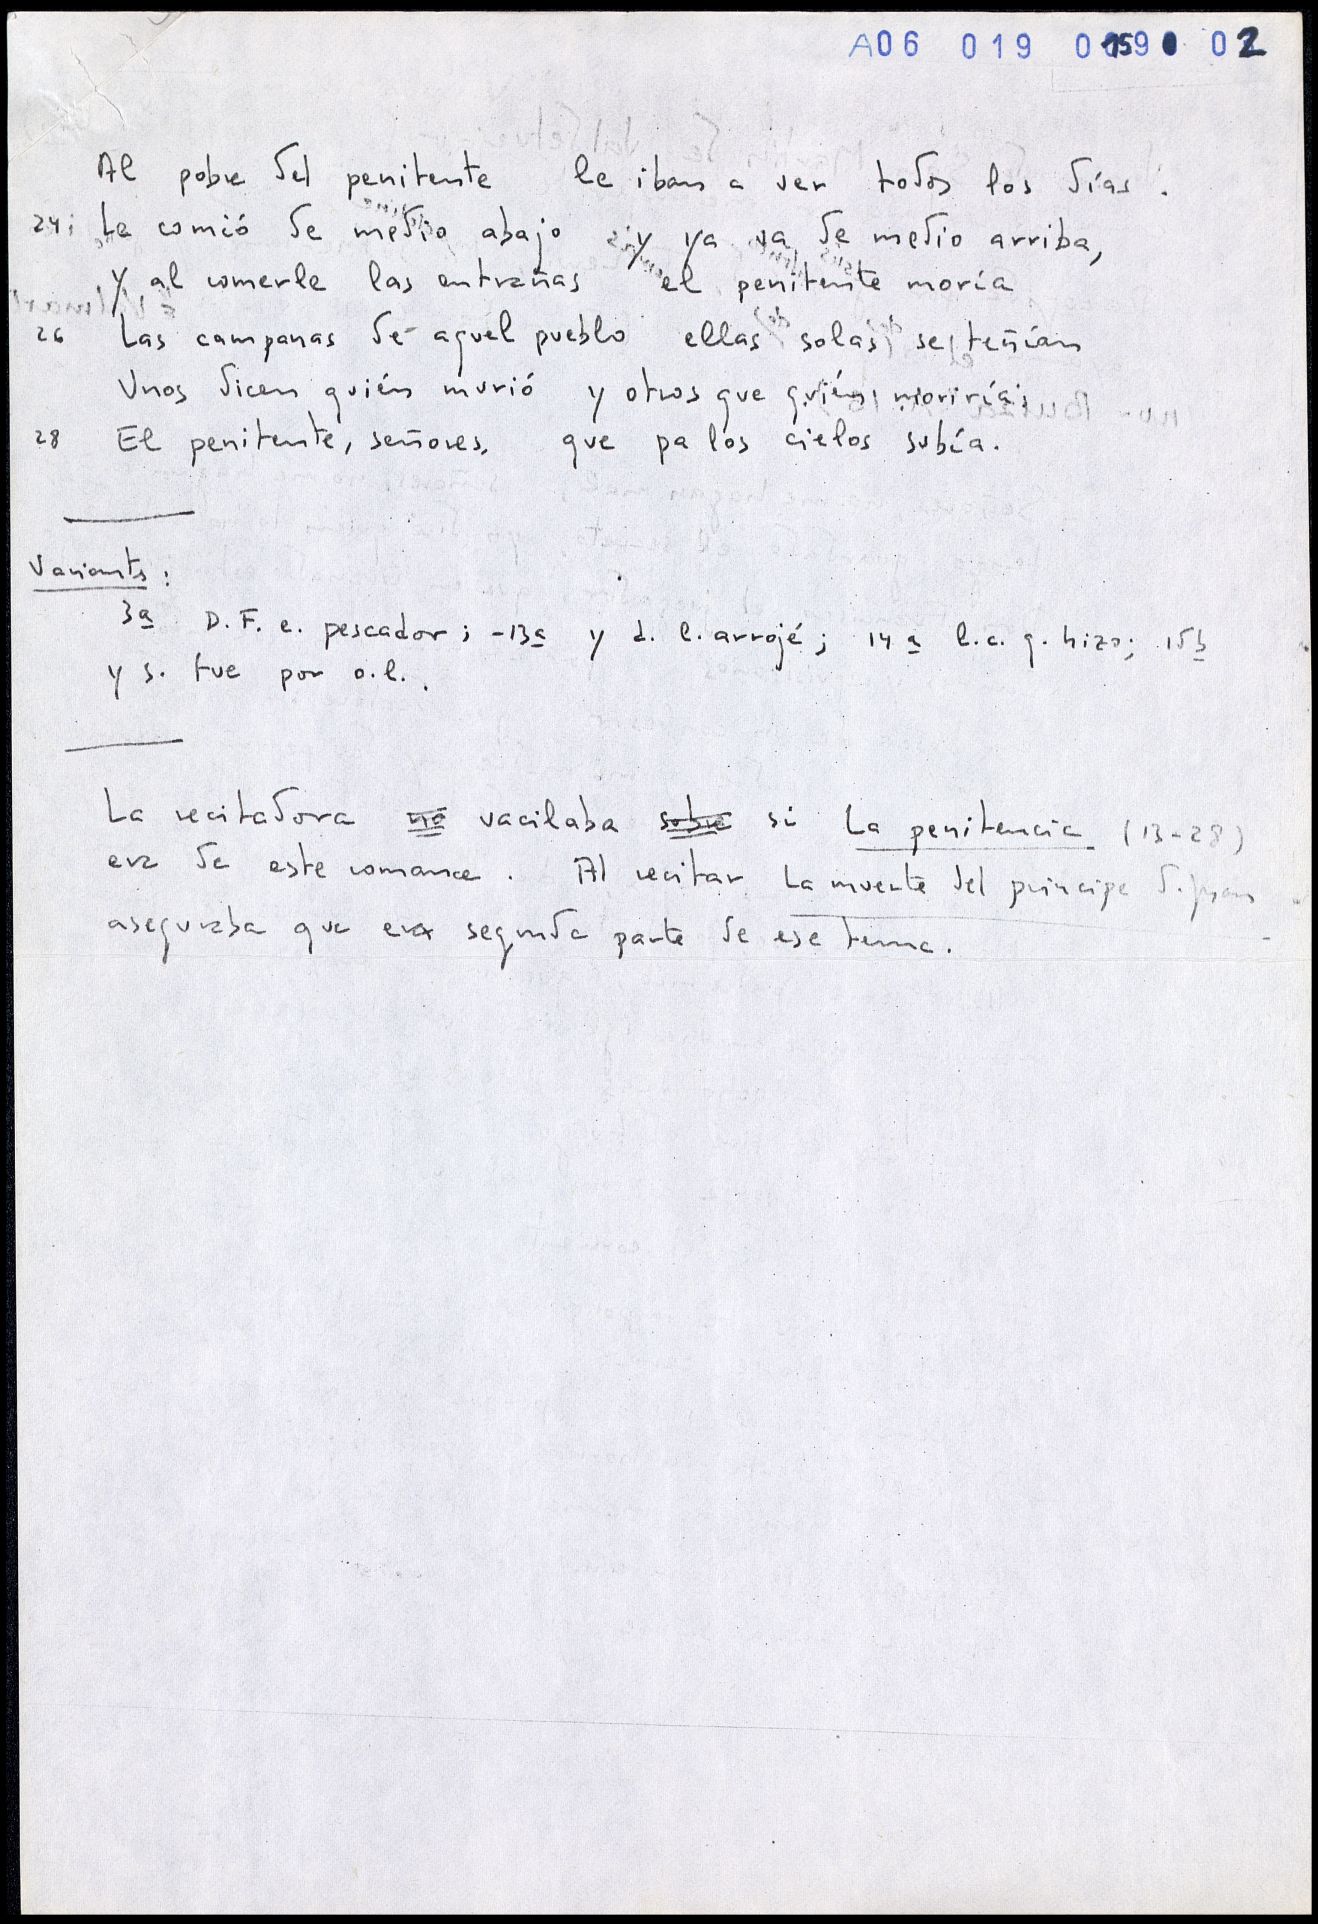 A06 019 0159 02
Al pobre del penitente le iban a ver todos los días.
24; Le comió de medio abajo y ya va de medio arriba,
y al comerle las entrañas el penitente moría
26 Las campanas de aquel pueblo ellas solas se teñían
Unos dicen quién murió y otros que quién moriría;
28 El penitente, señores, que pa los cielos subía.
Variants:
3a D. F. e. pescador; -13a y d. l. arrojé; 14a l. c. q. hizo; 15b
y s. fue por o. l..
La recitadora no vacilaba sobre si La penitencia (13-28)
era de este romance. Al recitar La muerte del príncipe d. Juan
aseguraba que era segunda parte de ese tema.